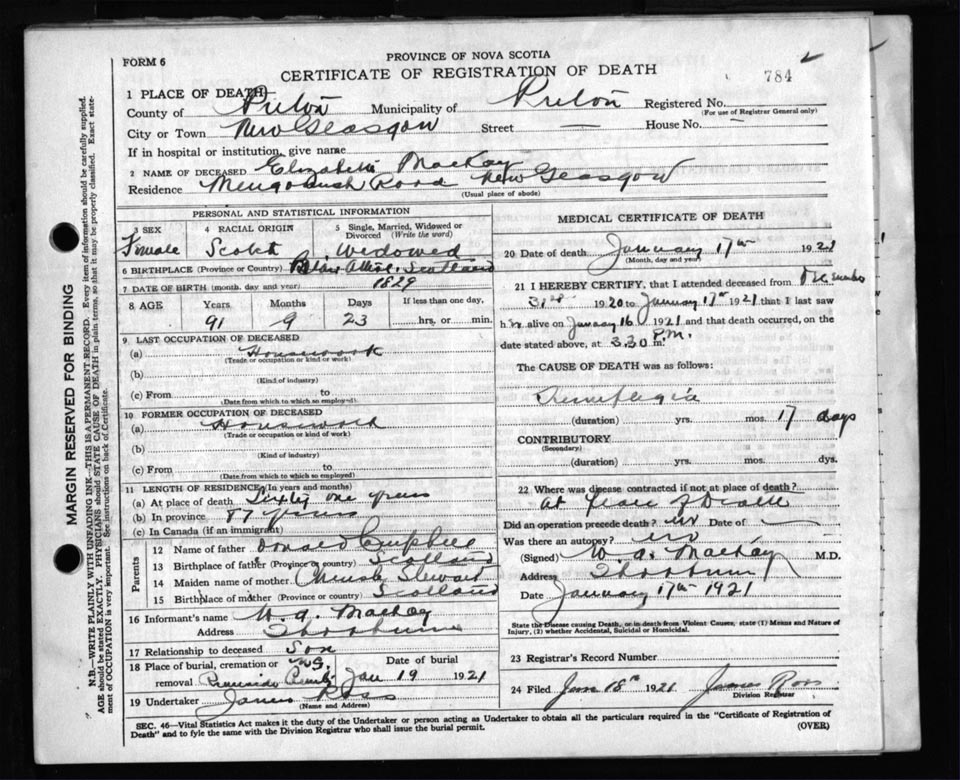 FORM 6
PROVINCE OF NOVA SCOTIA
CERTIFICATE OF REGISTRATION OF DEATH
784
1 PLACE OF DEATH—
County of Pictou Municipality of Pictou Registered No.
(For use of Registrar General only)
City or Town New Glasgow Street — House No. —
If in hospital or institution, give name
2 NAME OF DECEASED Elizabeth MacKay
Residence Road New Glasgow
(Usual place of abode)
PERSONAL AND STATISTICAL INFORMATION
3 SEX 4 RACIAL ORIGIN 5 Single, Married, Widowed or Divorced (Write the word)
Female Scotch Widowed
6 BIRTHPLACE (Province or Country) Blair Athol, Scotland
7 DATE OF BIRTH (month, day and year) 1829
8 AGE Years Months Days If less than one day,
91 9 23 hrs. or min.
9 LAST OCCUPATION OF DECEASED
(a) Housework
(Trade or occupation or kind of work)
(b)
(Kind of industry)
(c) From to
(Date from which to which so employed)
10 FORMER OCCUPATION OF DECEASED
(a) Housework
(Trade or occupation or kind of work)
(b)
(Kind of industry)
(c) From to
(Date from which to which so employed)
11 LENGTH OF RESIDENCE (In years and months)
(a) At place of death Sixty one years
(b) In province 87 years
(c) In Canada (if an immigrant)
Parents
12 Name of father Donald Campbell
13 Birthplace of father (Province or country) Scotland
14 Maiden name of mother Stewart
15 Birthplace of mother (Province or country) Scotland
16 Informant's name W. A. MacKay
Address Thorburn
17 Relationship to deceased Son
18 Place of burial, cremation or removal N.G. Riverside Cemty Date of burial Jan 19 1921
19 Undertaker James Ross
(Name and Address)
MEDICAL CERTIFICATE OF DEATH
20 Date of death January 17th 1921
(Month, day and year)
21 I HEREBY CERTIFY, that I attended deceased from December
31st 1920 to January 17th 1921 that I last saw
her alive on January 16 1921 and that death occurred, on the
date stated above, at 3.30 P.M. m.
The CAUSE OF DEATH was as follows:
Hemiplegia
(duration) yrs. mos. 17 days
CONTRIBUTORY
(Secondary)
(duration) yrs. mos. dys.
22 Where was disease contracted if not at place of death?
At place of Death
Did an operation precede death? no Date of —
Was there an autopsy? no
(Signed) W. A. MacKay M.D.
Address Thorburn
Date January 17th 1921
State the Disease causing Death, or in death from Violent Causes, state (1) Means and Nature of Injury, (2) whether Accidental, Suicidal or Homicidal.
23 Registrar's Record Number
24 Filed Jan 18th 1921 James Ross
Division Registrar
SEC. 46—Vital Statistics Act makes it the duty of the Undertaker or person acting as Undertaker to obtain all the particulars required in the "Certificate of Registration of
Death" and to fyle the same with the Division Registrar who shall issue the burial permit.
(OVER)
MARGIN RESERVED FOR BINDING
N.B.—WRITE PLAINLY WITH UNFADING INK—THIS IS A PERMANENT RECORD. Every item of information should be carefully supplied.
AGE should be stated EXACTLY. PHYSICIANS should STATE CAUSE OF DEATH in plain terms, so that it may be properly classified. Exact state-
ment of OCCUPATION is very important. See instructions on back of Certificate.